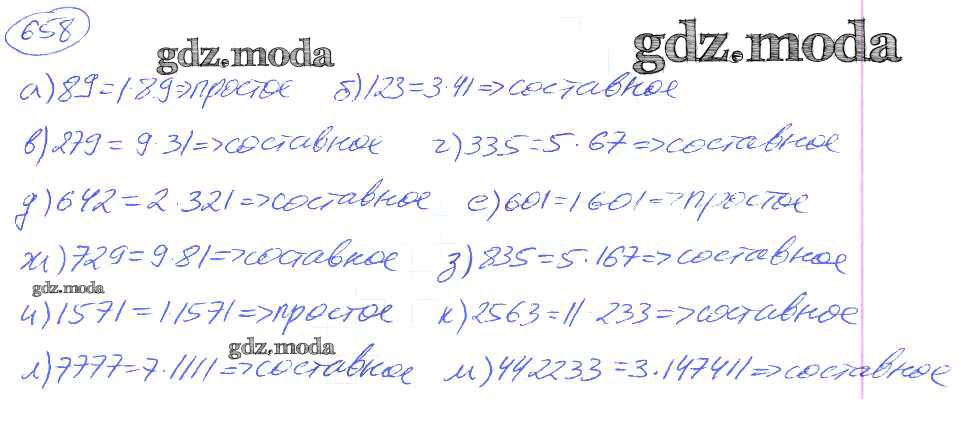 658
gdz.moda
gdz.moda
а) 89=1·89=>простое б) 123=3·41=>составное
в) 279=9·31=>составное г) 335=5·67=>составное
д) 642=2·321=>составное е) 601=1 601=>простое
ж) 729=9·81=>составное з) 835=5·167=>составное
gdz.moda
и) 1571=1·1571=>простое к) 2563=11·233=>составное
gdz.moda
л) 7777=7·1111=>составное м) 442233=3·147411=>составное